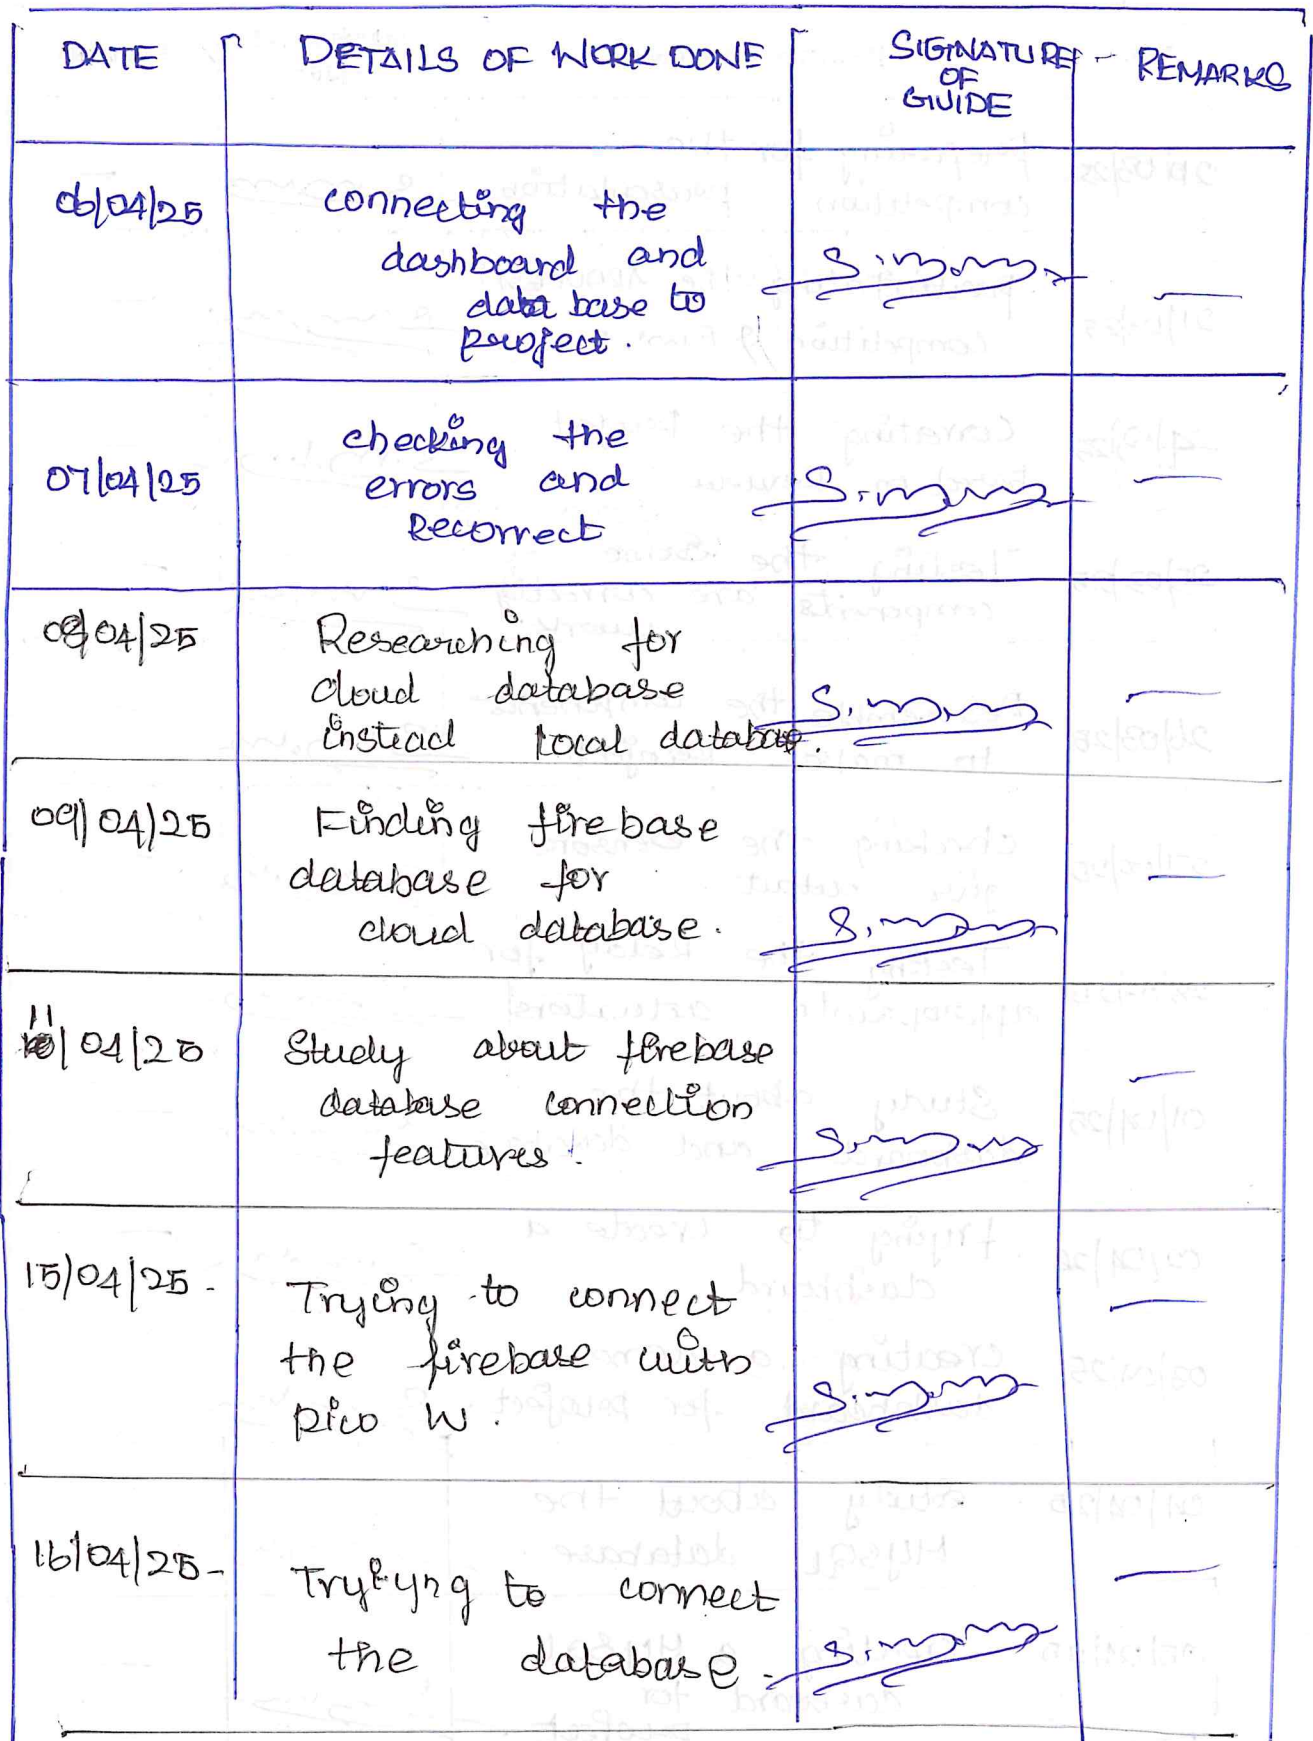 DATE DETAILS OF WORK DONE SIGNATURE - REMARKS
OF
GUIDE
06/04/25 connecting the
dashboard and
data base to
project.
07/04/25 checking the
errors and
Recorrect
08/04/25 Researching for
cloud database
instead local database.
09/04/25 Finding firebase
database for
cloud database.
11/04/25 Study about firebase
database connection
features.
15/04/25 - Trying to connect
the firebase with
Pico W.
16/04/25 - Tryiyng to connect
the database.